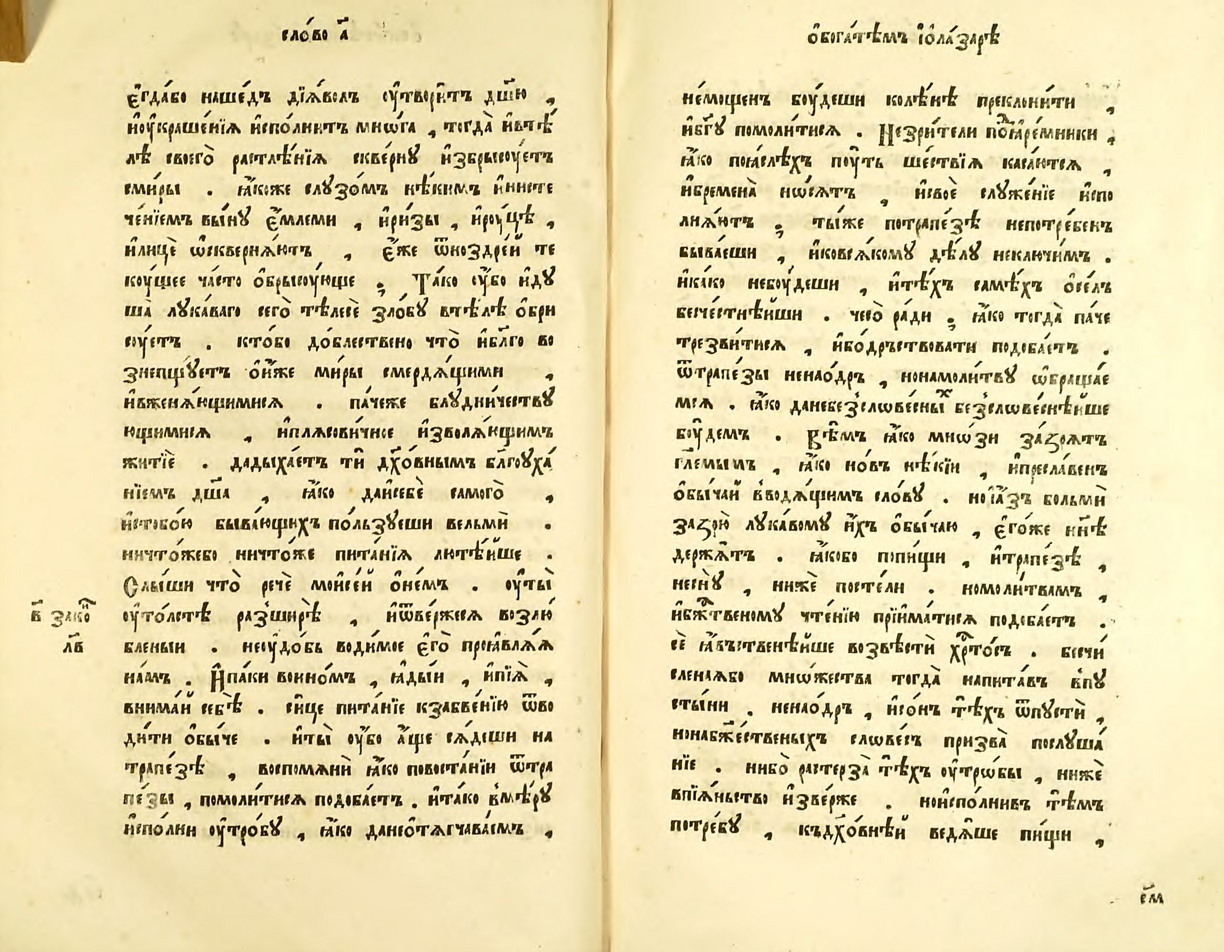 сло́во а҃
є҆гда́бо наше́дъ дїѧ́волъ ѹ҆твори́тъ дш҃ю ,
и҆ѹ҆краше́нїѧ и҆спо́лнитъ мно́га , тогда̀ и҆втѣ́
лѣ своего̀ растлѣ́нїѧ скве́рну и҆збрысꙋ́етъ
сми́ры . ꙗ҆́коже слꙋзо́мъ нѣ́кимъ и҆ нисте
че́нїемъ вы́нꙋ є҆́млеми , и҆ри́зы , и҆рꙋ́цѣ ,
и҆лицѐ ѡ҆скверня́ютъ , є҆́же ѿноздре́й те
кꙋ́щее ча́сто ѻ҆брысꙋ́юще . Та́ко ѹ҆́бо и҆дꙋ
ща̀ лꙋка́ваго сего̀ тѣ́лесѐ зло́бꙋ втѣ́лѣ ѻ҆бри
сꙋ́етъ . кто́бо до́блествено что̀ и҆бл҃го во
знепщꙋ́етъ ѻ҆и҆́же ми́ры смердѧ́щими ,
и҆вженѧ́ющимисѧ . па́чеже блꙋдни́чествꙋ
ющимисѧ , и҆плѧсови́чное и҆зволѧ́ющимъ
житїѐ . дадыха́етъ тѝ дх҃о́внымъ бл҃гоꙋха́
нїемъ дш҃а̀ , ꙗ҆́ко даи҆себѐ самого̀ ,
и҆стобо́ю быва́ющихъ по́льзꙋеши вельмѝ .
ничто́жебо ничто́же пита́нїѧ лютѣ́йше .
Слы́ши что̀ речѐ мои҆се́й ѻ҆не́мъ . ѹ҆ты̀
ѹ҆то́лстѣ разширѣ̀ , и҆ѿве́ржесѧ возлю́
бленыи . неꙋдо́бь води́мое є҆го̀ проꙗвлѧ́ѧ
на́мъ . И҆па́ки во и҆но́мъ , ꙗ҆ды́и , и҆пїѧ̀ ,
внима́й себѣ̀ . си́це пита́нїе кзабве́нїю ѿво
ди́ти ѻ҆бы́че . и҆ты̀ ѹ҆́бо а҆́ще сѧ́деши на
трапе́зѣ , воспомѧнѝ ꙗ҆́ко повоста́нїи ѿтра
пе́зы , помоли́тисѧ подоба́етъ . и҆та́ко вмѣ́рꙋ
и҆спо́лни ѹ҆тро́бꙋ , ꙗ҆́ко данеѻ҆тѧгчава́емъ ,
в҃ зако
л҃в
ѻ҆бога́тѣмъ і҆ѻ҆ла́зарѣ
не́мощенъ бꙋ́деши колѣ́нѣ преклони́ти ,
и҆бг҃ꙋ помоли́тисѧ . Незри́тели поꙗре́мники ,
ꙗ҆́ко послѣ́хъ пꙋ́ть ше́ствїѧ каса́ютсѧ ,
и҆бремена̀ но́сѧтъ , и҆своѐ слꙋже́нїе и҆спо
лнѧ́ютъ . ты́же потрапе́зѣ непотре́бенъ
быва́еши , и҆ковсѧ́комꙋ дѣ́лꙋ неключи́мъ .
и҆ка́ко небꙋ́деши , и҆тѣ́хъ самѣ́хъ ѻ҆се́лъ
безче́стнѣйши . чесо̀ ра́ди . ꙗ҆́ко тогда̀ па́че
трезви́тисѧ , и҆бо́дръствовати подоба́етъ .
ѿтрапе́зы ненаѻ҆дръ , нонамоли́твꙋ ѡ҆браща́е
мсѧ . ꙗ҆́ко данебез̾слове́сныхъ без̾слове́снѣйше
бꙋ́демъ . Вѣ́мъ ꙗ҆́ко мно́зи за́зрѧтъ
гл҃емымъ , ꙗ҆́ко но́въ нѣ́кїи , и҆пресла́венъ
ѻ҆бы́чай вводѧ́щимъ сло́вꙋ . но і҆а҆́зъ больмѝ
зазрю̀ лꙋка́вомꙋ и҆́хъ ѻ҆бы́чаю , є҆го́же нн҃ѣ
держа́тъ . ꙗ҆́кобо попи́щи , и҆трапе́зѣ ,
неснꙋ̀ , нижѐ посте́ли . номоли́твамъ ,
и҆бж҃твеному чте́нїю прїима́тисѧ подоба́етъ .
сѐ ꙗ҆́въственѣйше возвѣстѝ хр҃то́съ . безчи́
сленаѧбо мно́жества тогда̀ напита́въ впꙋ
сты́ни , ненаѻ҆дръ , и҆со́нъ тѣ́хъ ѿпꙋстѝ ,
нонабж҃е́ственыхъ слове́съ призва̀ послꙋша́
нїе . нибо̀ растерза̀ тѣ́хъ ѹ҆тро́бы , нижѐ
впїѧ́ньство и҆зве́рже . нои҆спо́лнивъ тѣ́мъ
потре́бꙋ , къдх҃о́внѣй ведѧ́ше пи́щи ,
є҆м